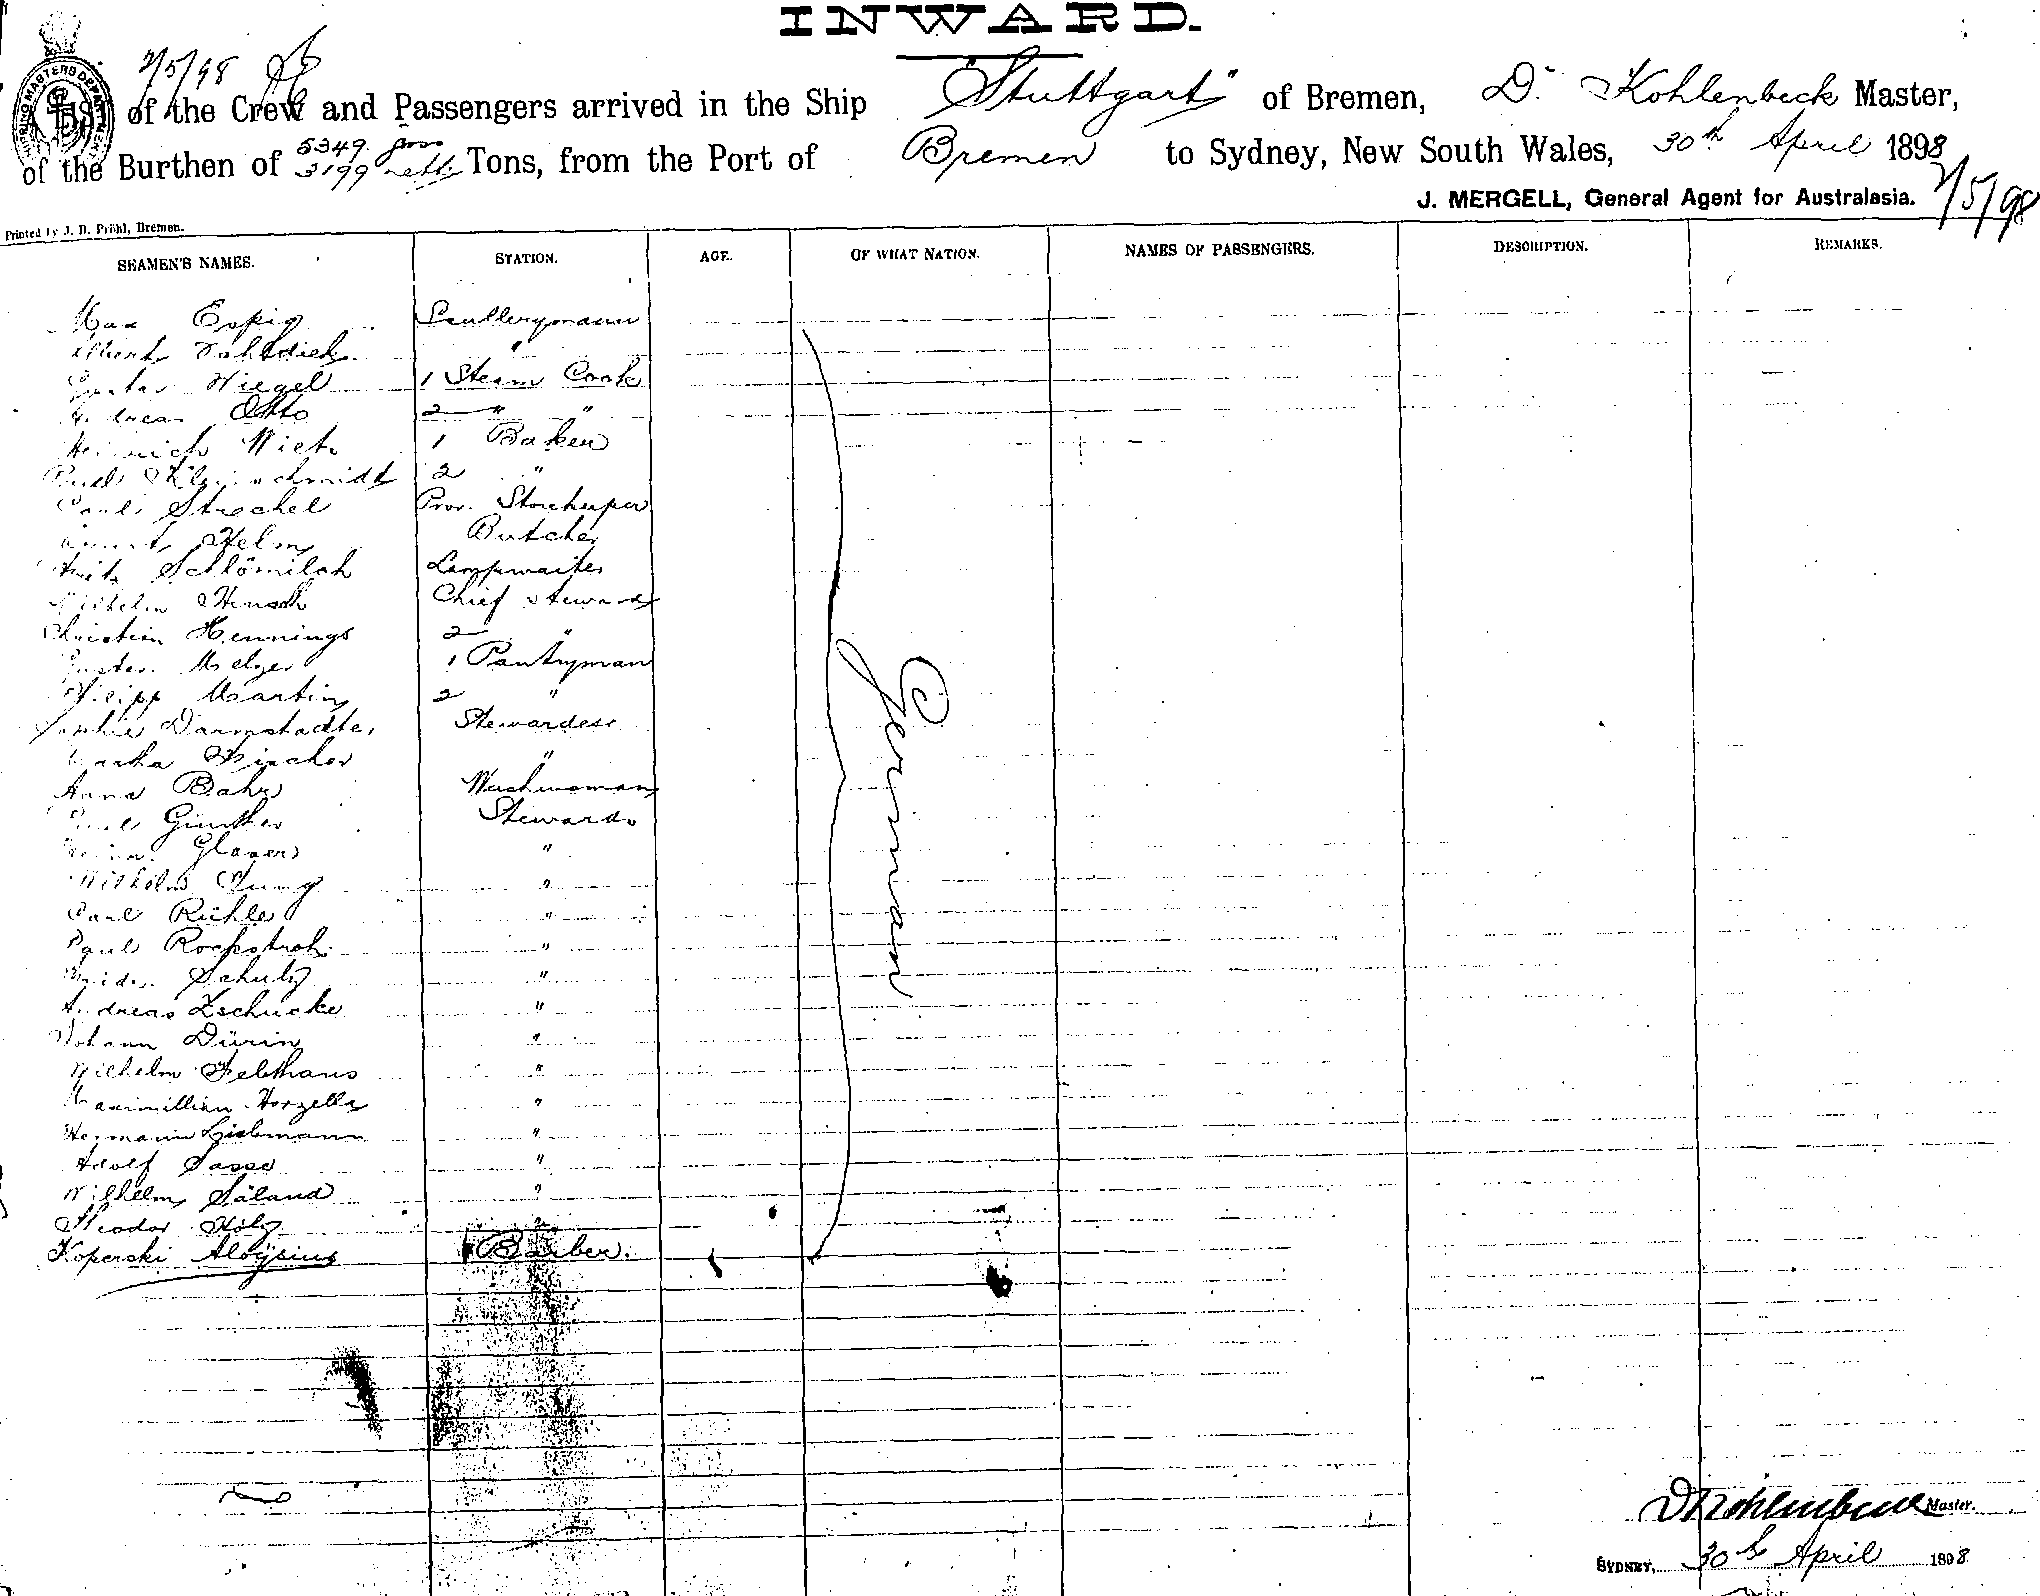 INWARD.
2/5/98
List of the Crew and Passengers arrived in the Ship "Stuttgart" of Bremen, D. Kohlenbeck Master,
of the Burthen of 5349 gross 3199 nett. Tons, from the Port of Bremen to Sydney, New South Wales, 30th April 1898
J. MERGELL, General Agent for Australasia. 2/5/98
Printed by J. D. Pröhl, Bremen.
SEAMEN'S NAMES. STATION. AGE. OF WHAT NATION. NAMES OF PASSENGERS. DESCRIPTION. REMARKS.
Max Espig Scullerymann
Albert "
Gustav Wiegel 1 Steam Cook
Andreas Otto 2 " "
Heinrich 1 Baker
Kleinschmidt 2 "
Paul Strechel Prov. Storekeeper
August Helm Butcher
Fritz Schlömilch Lampwaiter
Wilhelm Hensch Chief Steward
Christian Hennings 2 "
Gustav Melzer 1 Pantryman
Philipp Martin 2 "
Sophie Darmstadter Stewardess
Martha Fischer "
Anna Bahr Washwoman
Günther Stewards
Glaser "
Wilhelm Jung "
Carl Richter "
Paul Rockstroh "
Schulz "
Andreas Zschucke "
Johann Dürin "
Wilhelm Felthaus "
Maximillian Horzella "
Hermann Liebmann "
Adolf Sasse "
Wilhelm Säland "
Theodor Holz "
Koperski Aloÿsius Barber.
German
D Kohlenbeck Master.
SYDNEY, 30th April 1898